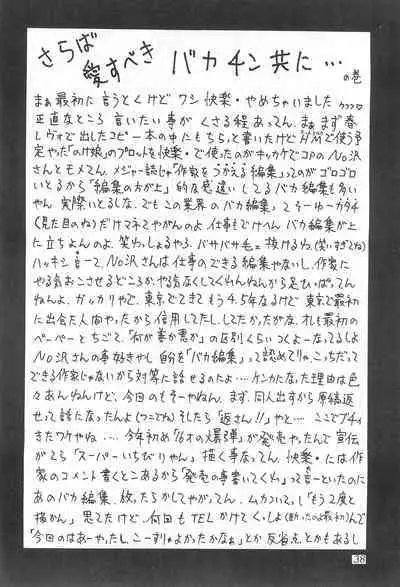 さらば
愛すべき バカチン共に…
の巻
まぁ最初に言うとくけど ワシ 快楽・やめちゃいました ウフフ♡
正直なところ 言いたい事が くさる程あってん。まぁ まず春
レヴォで出したコピー本の中にもちらっと書いたけどHMで使う予
定やった「のけ娘」のプロットを快楽・で使ったのがキッカケでコアのNo沢
さんとモメてん。メジャー誌じゃ「作家をうがえる編集」ってのがゴロゴロ
いとるから「編集の方が上」的な感違いしてるバカ編集も多い
やん 実際いとるしな。でもこの業界のバカ編集ってそーゆーカタチ
(見た目のね)だけマネてやがんのよ 仕事もでけへん バカ編集が上
に立ちよんのよ。笑わしょるやろ、バサバサ毛ェ抜けるわ(笑いすぎてね)
ハッキシ言ーて、No沢さんは仕事のできる編集やないし、作家に
やる気おこさせるどころか、やる気なくしてくれんねんから足ひっぱってん
ねんよ。ガッカリやで、東京でてきてもう4.5年なるけど 東京で最初
に出会た人間やったから信用してたし。してたかったがな。オレも最初の
ペーペーとちごて、「何が善か悪か」の区別くらいつくよーなってるしよ
No沢さんの事好きやし 自分を「バカ編集」って認めてりゃ、こっちだって
できる作家じゃないから対等に話せるのたよ…ケンカになった理由は色
々あんねんけど、今回のもそーやねん。まず、同人出すから原稿返
せって話になったんよ(つこてねぇ)そしたら「返さん!!」やと…ここでブチィ
きたワケやね…今年初め「16才の爆弾」が発売やったんで 宣伝
がてら「スーパーいちびりやん」描く事なってん。快楽・には作
家のコメント書くとこあるから「発売の事書いてくれ」って言ーといたのに
あのバカ編集、放ったらかしてやがってん。ムカついて、「もう2度と
描かん」思てたけど、何回もTELかけてくっしよ(断ったのよ最初)んで
「今回のはあーやったし、こーすりゃよかったかなぁ」とか反省点とかもあるし
38